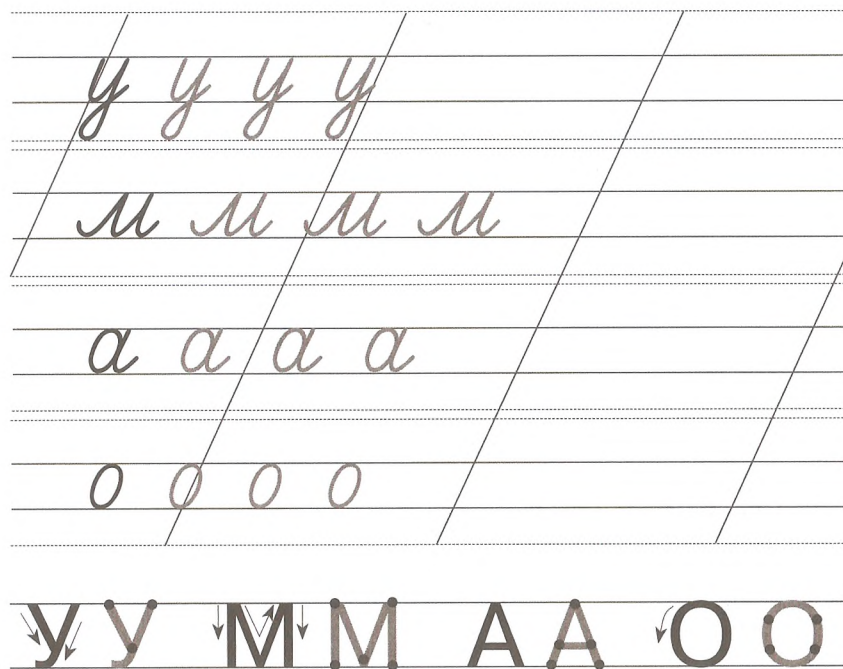 у у у у
м м м м
а а а а
о о о о
У У М М А А О О